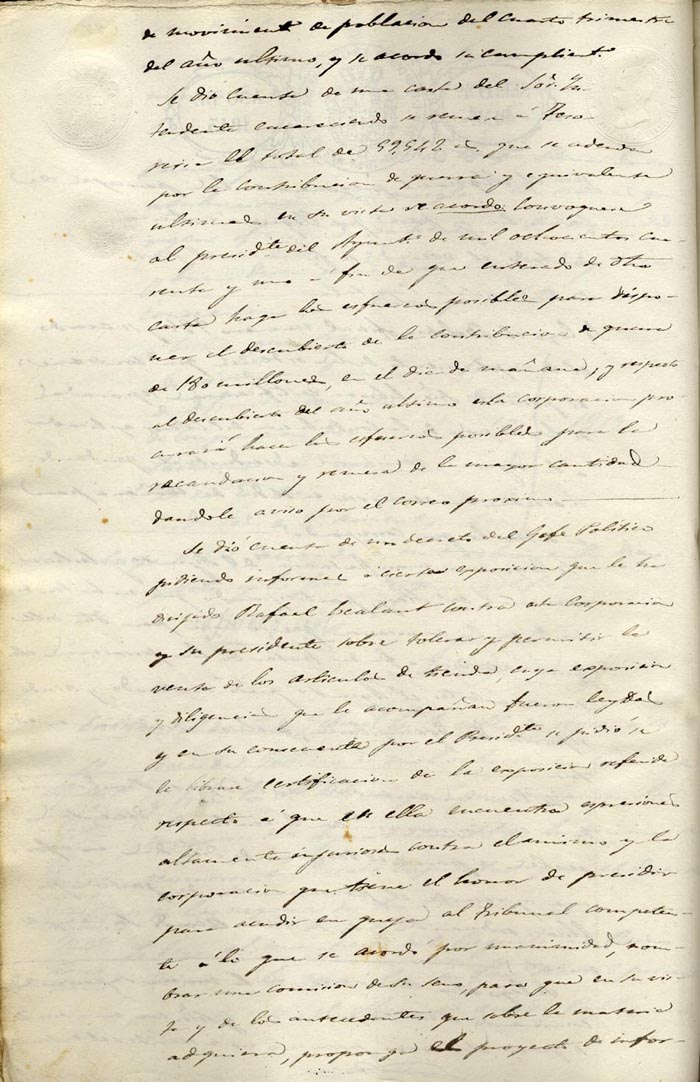 de movimient.º de poblacion del cuarto trimestre
del año ultimo, y se acordo su cumplient.º
Se dio cuenta de una carta del Sor. Yn
tendente encareciendo se remesa á Teso
reria el total de 59,542 que se adeuda
por la contribucion de guerra y equivalente
ultima en su vista se acordo: Convoquese
al presidte del Ayunt.º de mil ochocientos cua-
renta y uno á fin de que enterado de dha
carta haga los esfuerzos posibles para dispo-
ner el descubierto de la contribucion de guerra
de 180 millones, en el dia de mañana; y respecto
al descubierto del año ultimo esta corporacion pro-
curará hacer los esfuerzos posibles para la
recaudacion y remesa de la mayor cantidad
dandole aviso por el correo proximo
Se dió cuenta de un decreto del Gefe Politico
pidiendo informe á cierta exposicion que le ha
dirigido Rafael contra esta Corporacion
y su presidente sobre tolerar y permitir la
venta de los articulos de tienda, cuya exposicion
y diligencias que le acompañan fueron leydas
y en su consecuencia por el Presidte se pidió se
le librase certificacion de la exposicion referida
respecto á que en ella encuentra espresiones
altamente injuriosas contra el mismo y la
corporacion que tiene el honor de presidir
para acudir en queja al Tribunal competen-
te á lo que se acordó por unanimidad, nom-
brar una comision de su seno, para que en su vis-
ta y de los antecedentes que sobre la materia
adquiera, proponga el proyecto de infor-